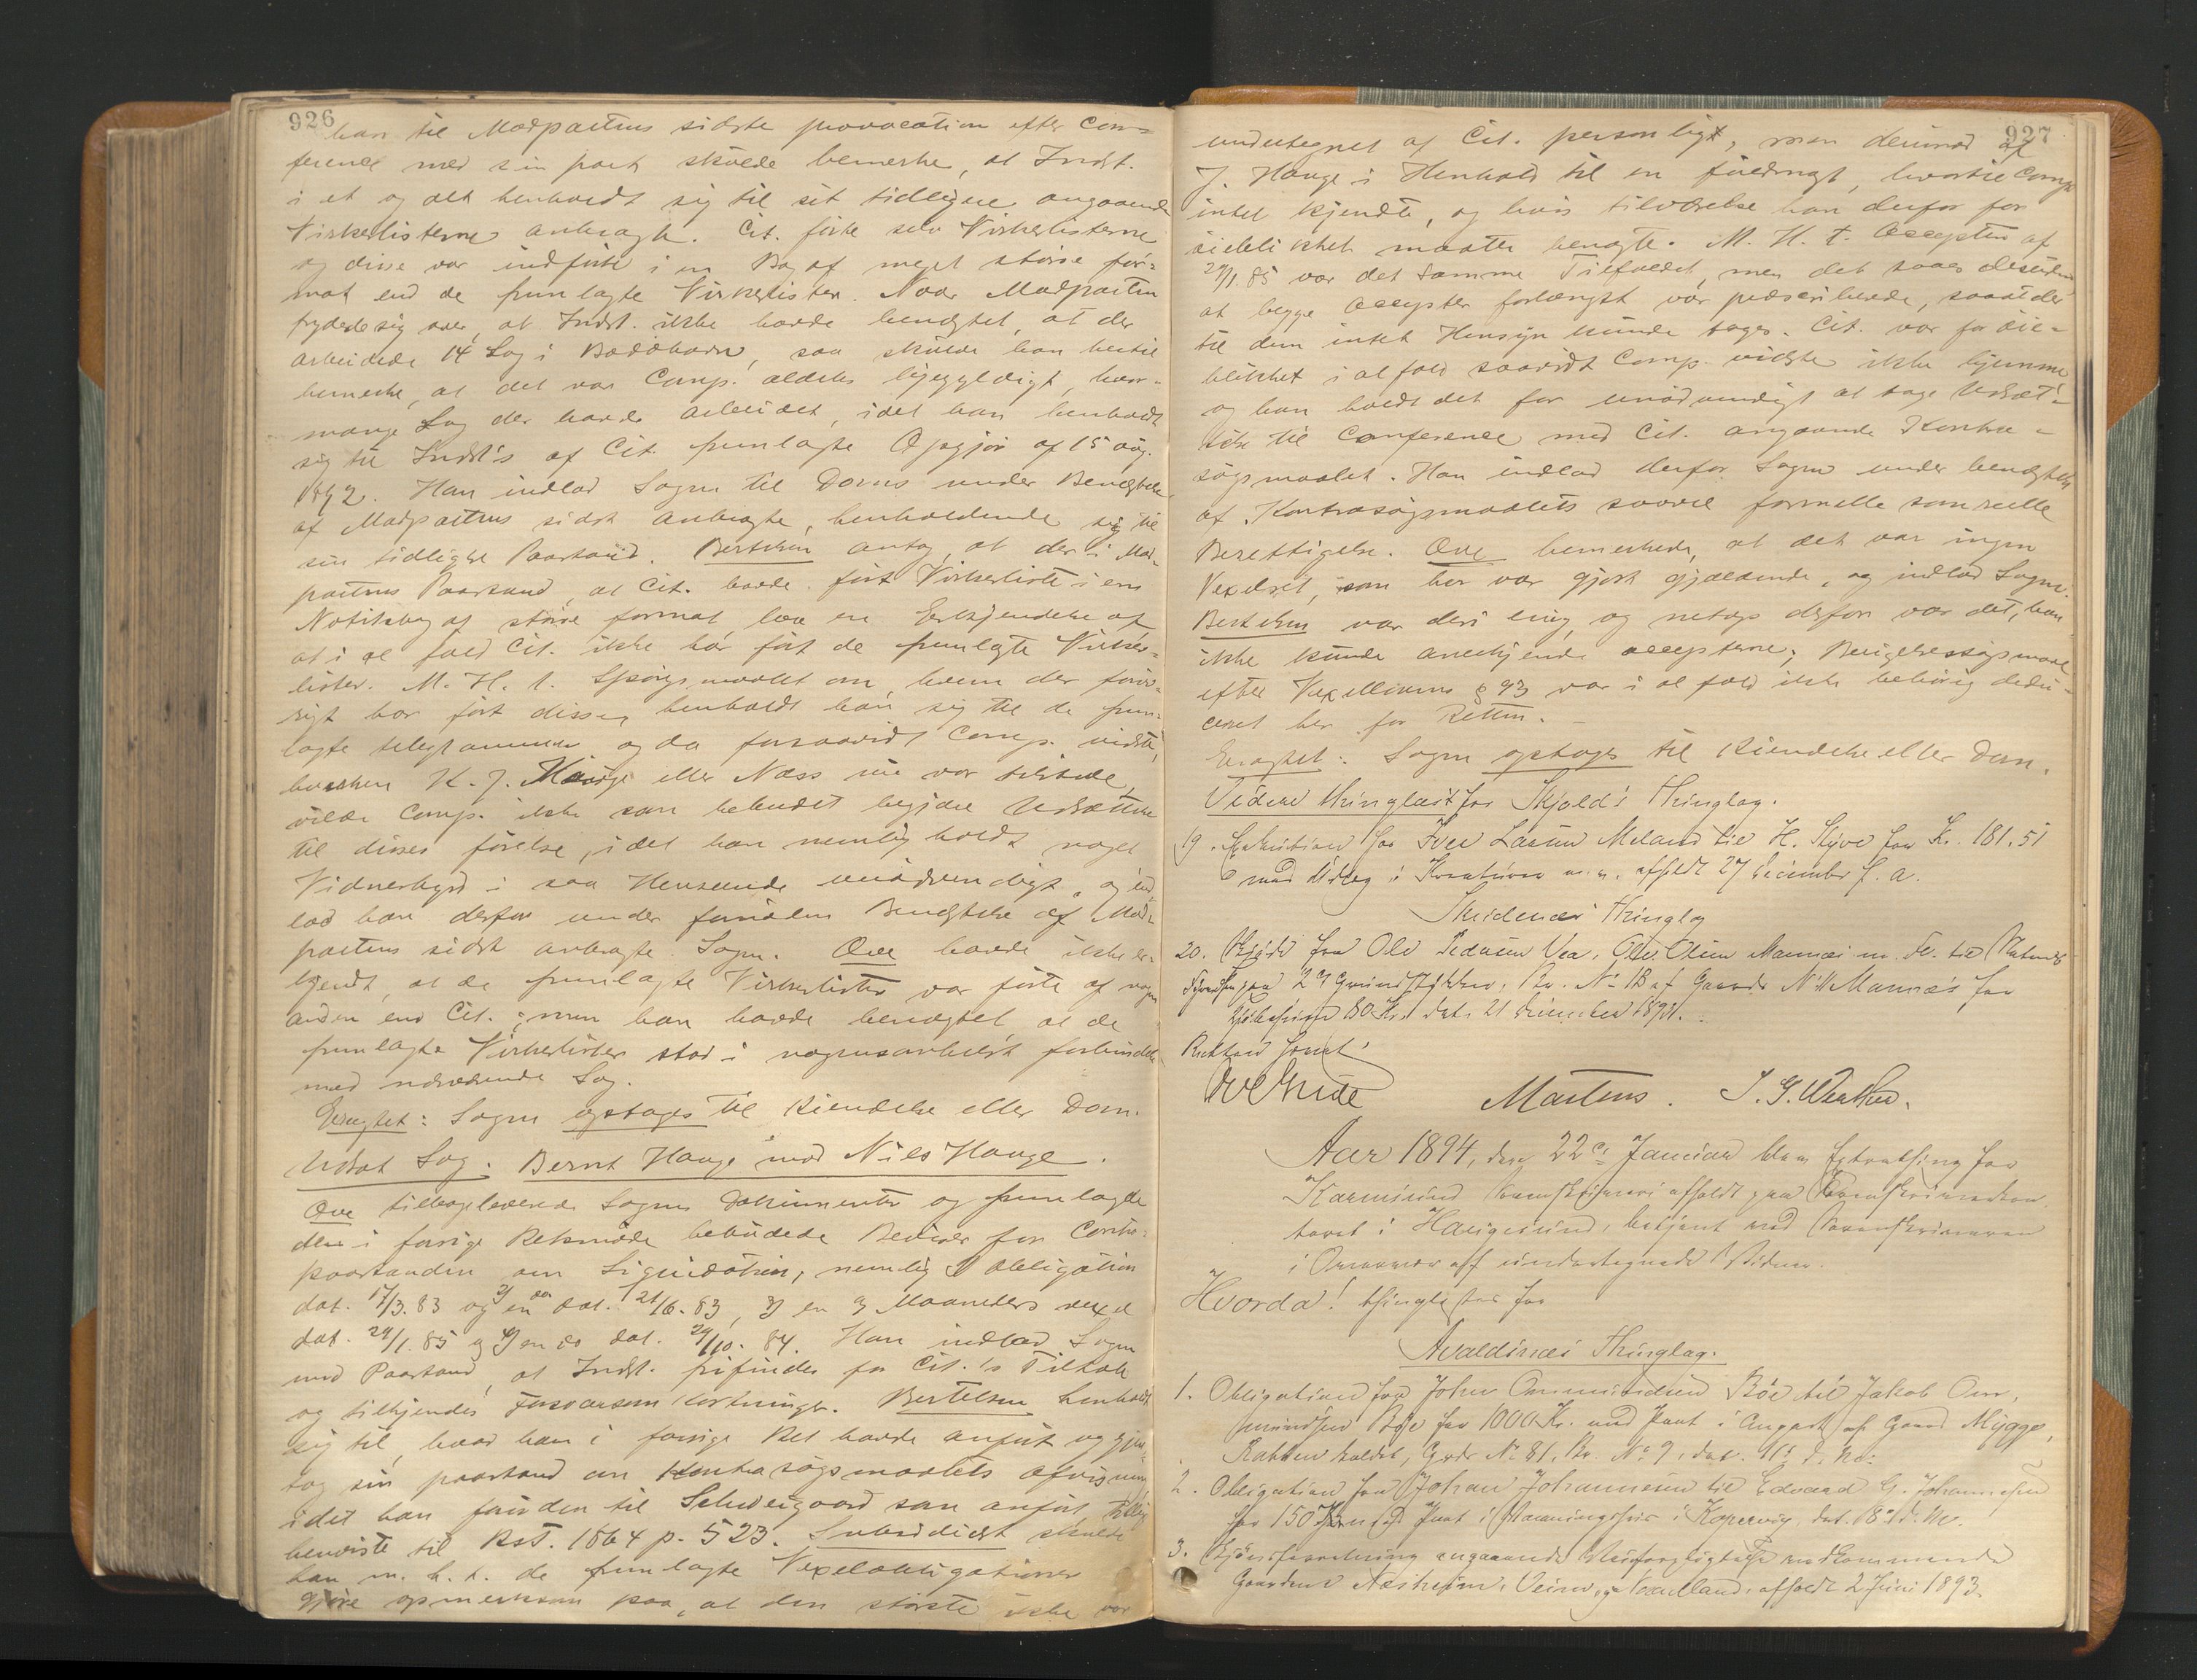 926
han til Modpartens sidste provocation efter Con=
ference med sin part skulde bemerke, at Indst.
i et og alt henholdt sig til sit tidligere angaaende
Virkerlisterne anbragte. Cit. førte selv Virkerlisterne
og disse var indførte i en Bog af meget større for=
mat end de fremlagte Virkerlister. Naar Modparten
frydede sig over, at Indst. ikke havde benægtet, at der
arbeidede 14 Lag i, saa skulde han hertil
bemerke, at det var Comp. aldeles ligegyldigt, hvor=
mange Lag der havde arbeidet, idet han henholdt
sig til Indst's af Cit. fremlagte Opgjør af 15 aug.
1892. Han indlod Sagen til Doms under Benægtelse
af Modpartens sidst anbragte, henholdende sig til
sin tidligere Paastand. Bertelsen antog, at der i Mod=
partens Paastand, at Cit. havde ført Virkerliste i en
Notitsbog af større format laa en Erkjendelse af
at i al fald Cit. ikke har ført de fremlagte Virker=
lister. M. H. t. Spørgsmaalet om, hvem der forøv=
rigt har ført disse, henholdt han sig til de frem=
lagte telegrammer og da forsaavidt Comp. vidste,
hverken K. J. Hauge eller Næss nu var tilstede,
vilde Comp. ikke som bebudet begjære Udsættelse
til disses førelse, idet han nemlig holdt noget
Vidnesbyrd i saa Henseende unødvendigt, og ind=
lod han derfor under forøvrig Benægtelse af Mod=
partens sidst anbragte Sagen. Ove havde ikke er=
kjendt, at de fremlagte Virkerlister var førte af nogen
anden end Cit.; men han havde benægtet, at de
fremlagte Virkerlister stod i nogensomhelst forbindelse
med nærværende Sag.
Eragtet: Sagen optages til Kjendelse eller Dom.
Udsat Sag. Bernt Hauge mod Niels Hauge.
Ove tilbageleverede Sagens Dokumenter og fremlagde
de i forrige Retsmøde bebudede Beviser for Contra=
paastanden om Liquidation, nemlig 1) obligation
dat. 17/3. 83 og 2) en do dat. 21/6. 83, 3) en 3 Maaneders vexel
dat. 29/1. 85 og 4) en do dat. 29/10. 84. Han indlod Sagen
med Paastand, at Indst. frifindes for Cit.'s Tiltale
og tilkjendes Sagsomkostninger. Bertelsen henholdt
sig til, hvad han i forrige Ret havde anført og gjen=
tog sin paastand om Kontrasøgsmaalets afvisning
idet han foruden til Schweigaard som anført tillige
henviste til Rst. 1864 p. 523. Subsidiært skulde
han m. h. t. de fremlagte Vexelobligationer
gjøre opmerksom paa, at den største ikke var
927
undertegnet af Cit. personligt, men derimod af
J. Hauge i Henhold til en fuldmagt, hvortil Comp.
intet kjendte, og hvis tilværelse han derfor for
øieblikket maatte benægte. M. H. t. accepten af
29/1. 85 var det samme Tilfældet, men det saaes desuden
at begge accepter forlængst var præscriberede, saa at der
til dem intet Hensyn kunde tages. Cit. var for øie=
blikket i alfald saavidt Comp. vidste ikke hjemme
og han holdt det for unødvendigt at tage Udsæt=
telse til Conference med Cit. angaaende Kontra=
søgsmaalet. Han indlod derfor Sagen under benægtelse
af Kontrasøgsmaalets saavel formelle som reelle
Berettigelse. Ove bemerkede, at det var ingen
Vexelret, som her var gjort gjældende, og indlod Sagen.
Bertelsen var deri enig, og netop derfor var det, han
ikke kunde anerkjende accepterne; Berigelsessøgsmaal
efter Vexellovens § 93 var i al fald ikke behørig dedu=
ceret her for Retten. –
Eragtet: Sagen optages til Kjendelse eller Dom.
Videre thinglæst for Skjold's Thinglag.
19. Exekution hos Iver Larsen Meland til H. Skjve for Kr. 181.51
med Udlæg i Kreaturer m. m. afholdt 27 december f. a.
Skudenæs Thinglag
20. Skjøde fra Ole Pedersen Vea, Ole Olsen Mannæs m. fl. til
paa 2de Grundstykker, Br. No 18 af Gaards No 11 Mannæs for
Kjøbesum 80 Kr. dat. 21 december 1891.
Retten hævet.
Martens. J. G.
Aar 1894, den 22de Januar blev Extrathing for
Karmsund Sorenskriveri afholdt paa Sorenskriverkon
toret i Haugesund, betjent ved Sorenskriveren
i Overvær af undertegnede Vidner.
Hvorda! thinglæstes for
Avaldsnæs Thinglag.
1. Obligation fra John Ammundsen Bøe til Jakob Am
mundsen Bøe for 1000 Kr. med Pant i Anpart af Gaard Mygge,
Rabben kaldet, Gards No 81, Br. No 9, dat. 11 d. M.
2. Obligation fra Johan Johannesen til Edvard G. Johannesen
for 150 Kr. med Pant i Vaaningshus i Kopervig, dat. 18 d. M.
3. Skjønsforretning angaaende vedkommende
Gaardene Næsheim, Veim, og afholdt 2 Juni 1893.